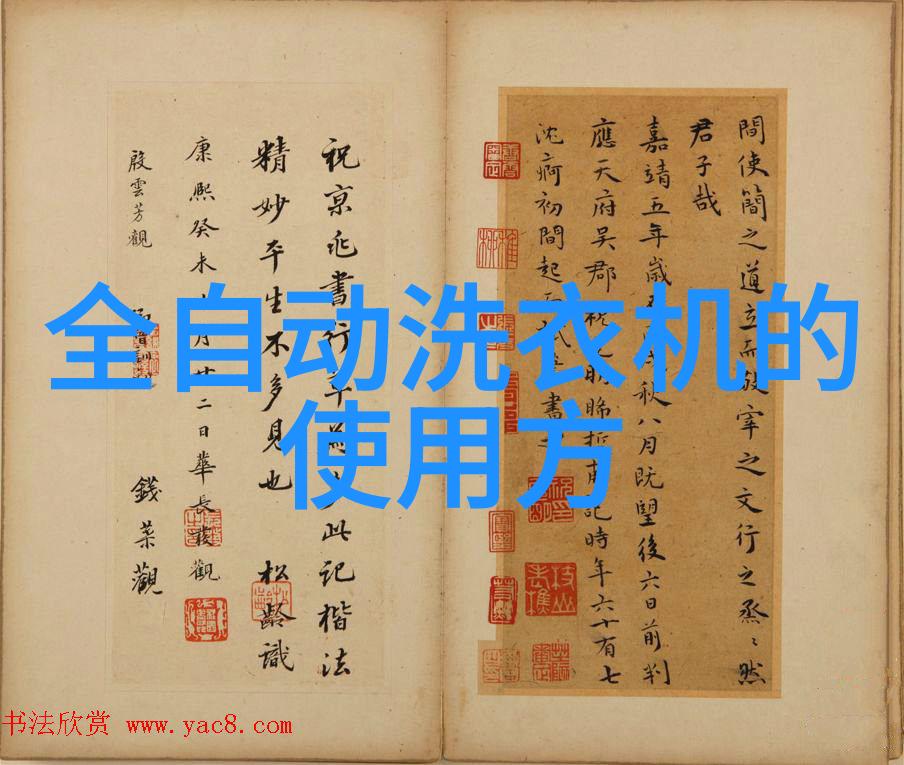 全自动洗衣机的
使用方
間使簡之道立而敘宰之文行之烝〻然
君子哉
嘉靖五年歲秋八月既望後六日前判
應天府吳郡祝允明晞哲甫記時年六十有七
沈疴初間起書
祝京兆書行草此記楷法
精妙平生不多見也 松齡識
康熙癸未月廿二日華長發觀
殷雲芳觀
錢荣觀
书法欣赏 www.yac8.com